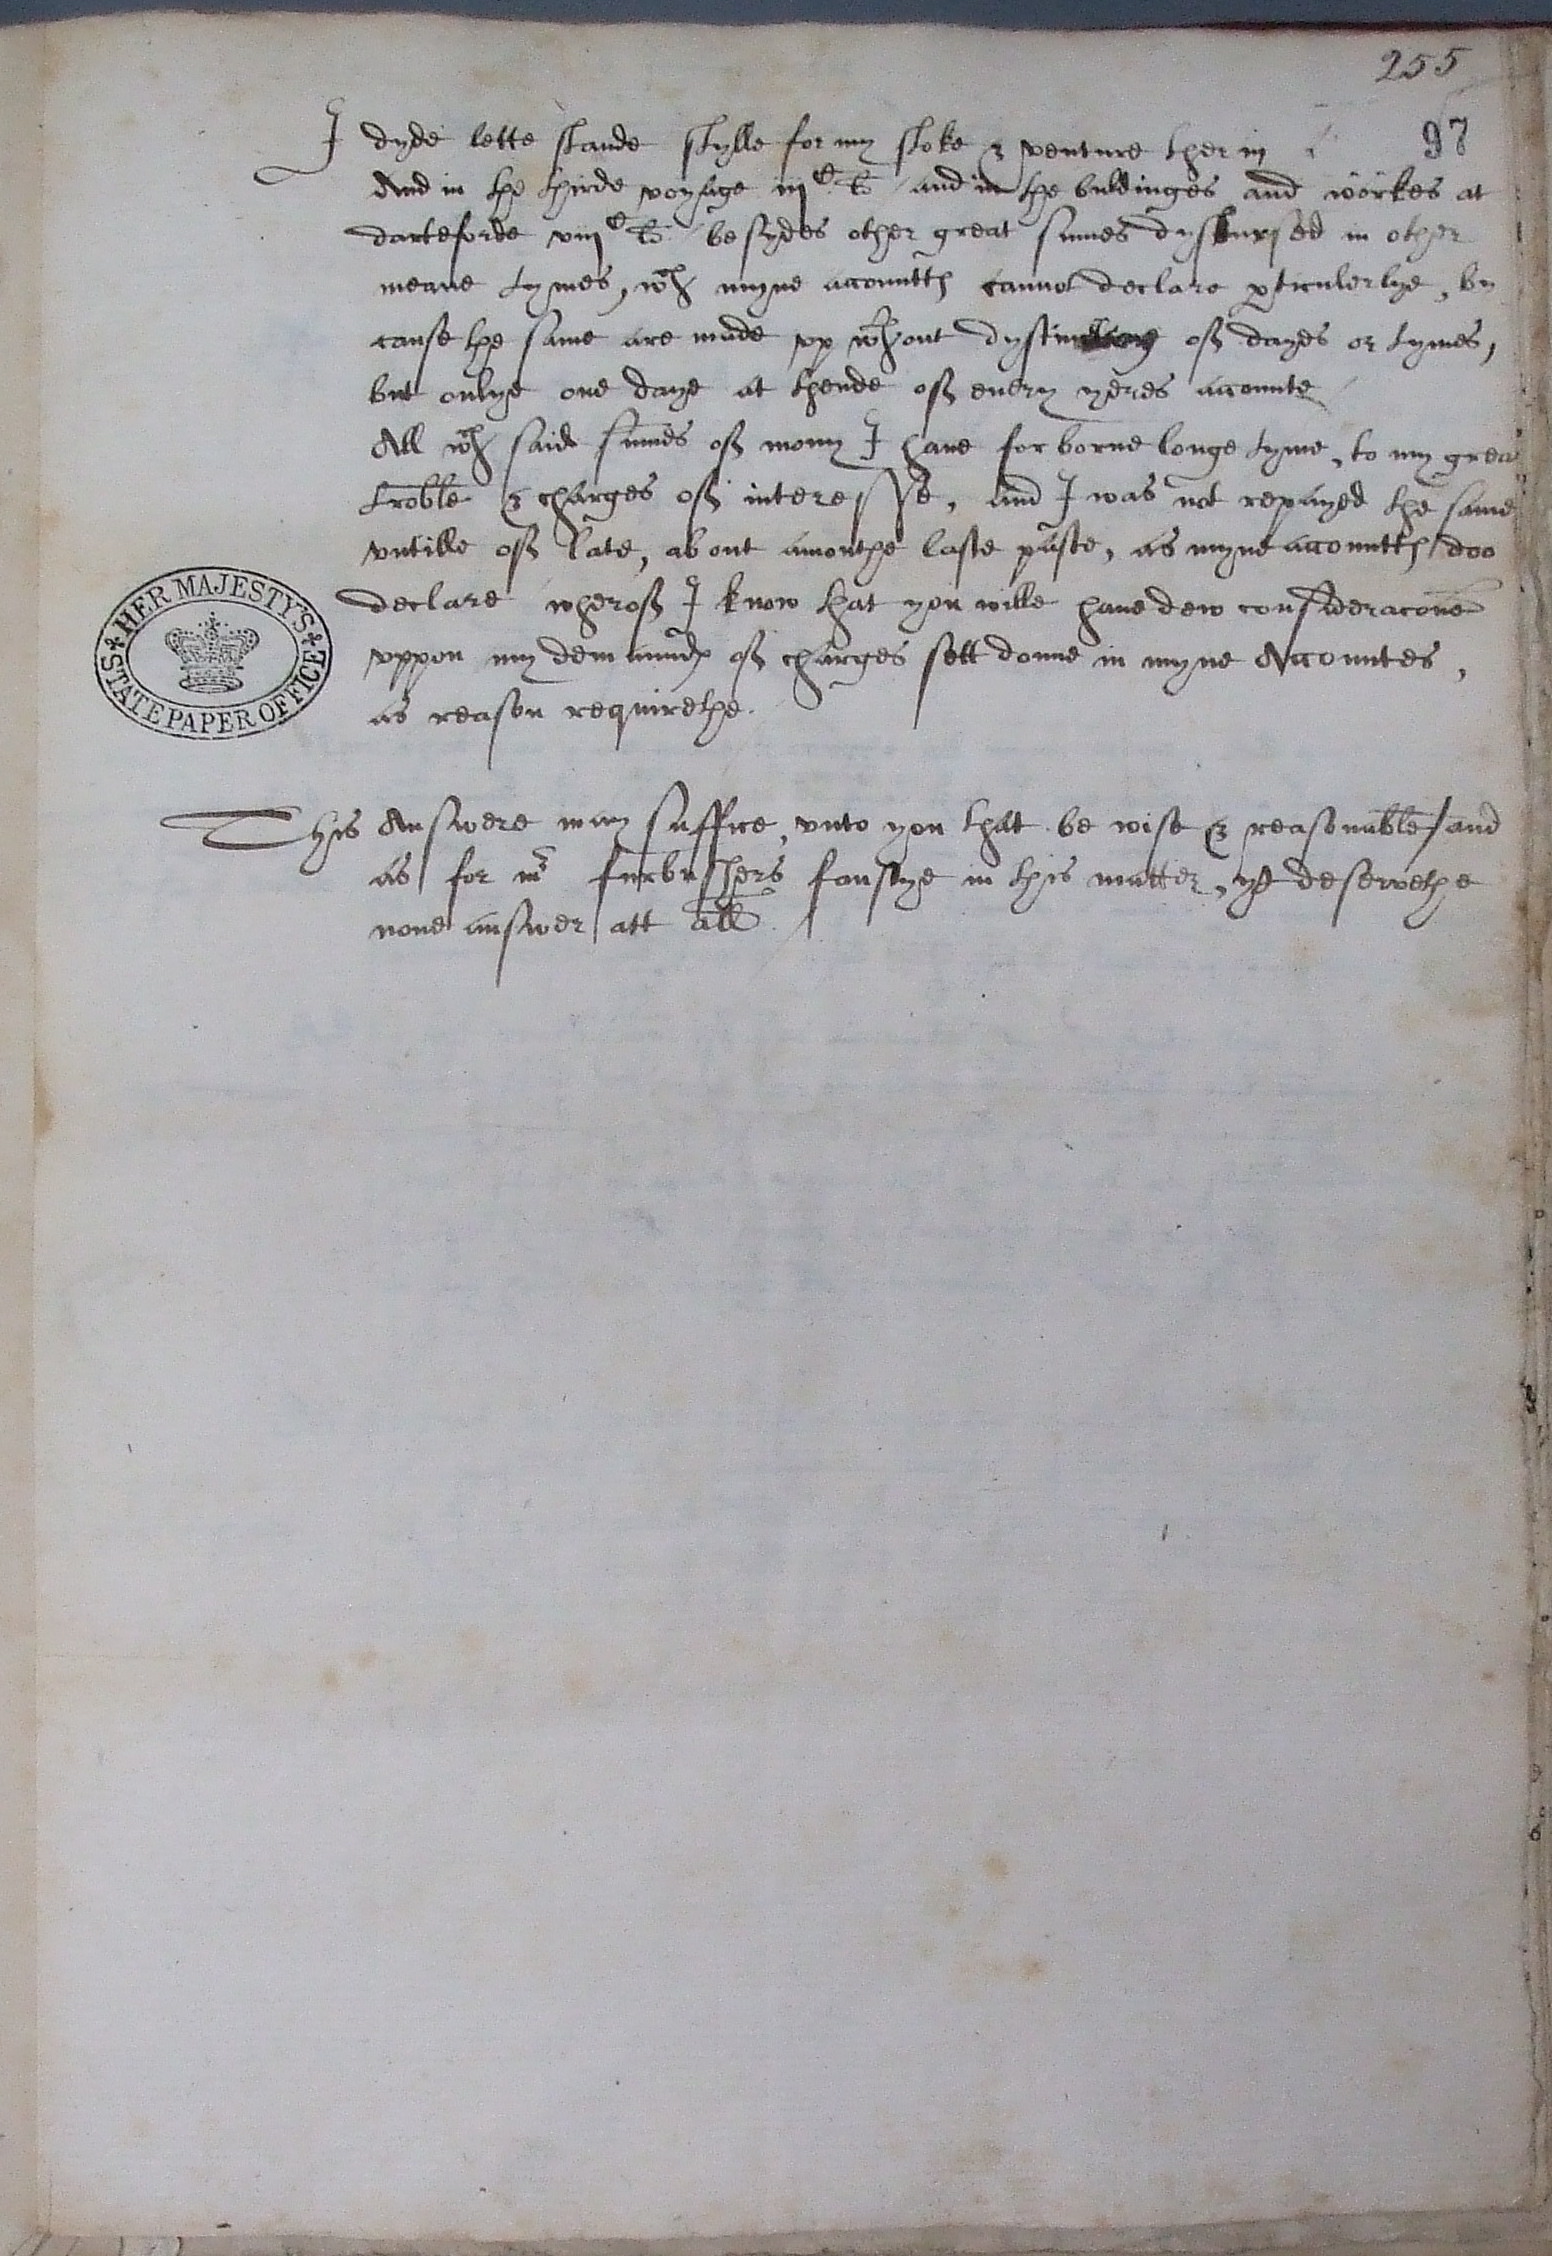 255
97
I dyde lette stande stylle for my stoke & venture ther in
And in the thirde voyage iiijC ll and in the buldinges and workes at
darteforde viijC ll besydes other great sumes dysbursed in other
meane tymes, wch myne accountts cannot declare pticulerlye, by
cause the same are made vp wthout dystinctione off dayes or tymes,
but onlye one daye at thende off euery yeres accounte
All wch said sumes off mony I haue forborne longe tyme, to my great
troble & charges off interesse, and I was not repayed the same
vntille off late, about amonthe laste paste, as myne accountts doo
declare wheroff I know that you wille haue dew consideracone
vppon my demaunds off charges sett doune in myne Accountes,
as reason requirethe.
HER MAJESTY'S STATE PAPER OFFICE
This Answere may suffice, vnto you that be wise & reasonable / and
as for mr furbushers fonstye in this matter, yt deservethe
none answer att all.